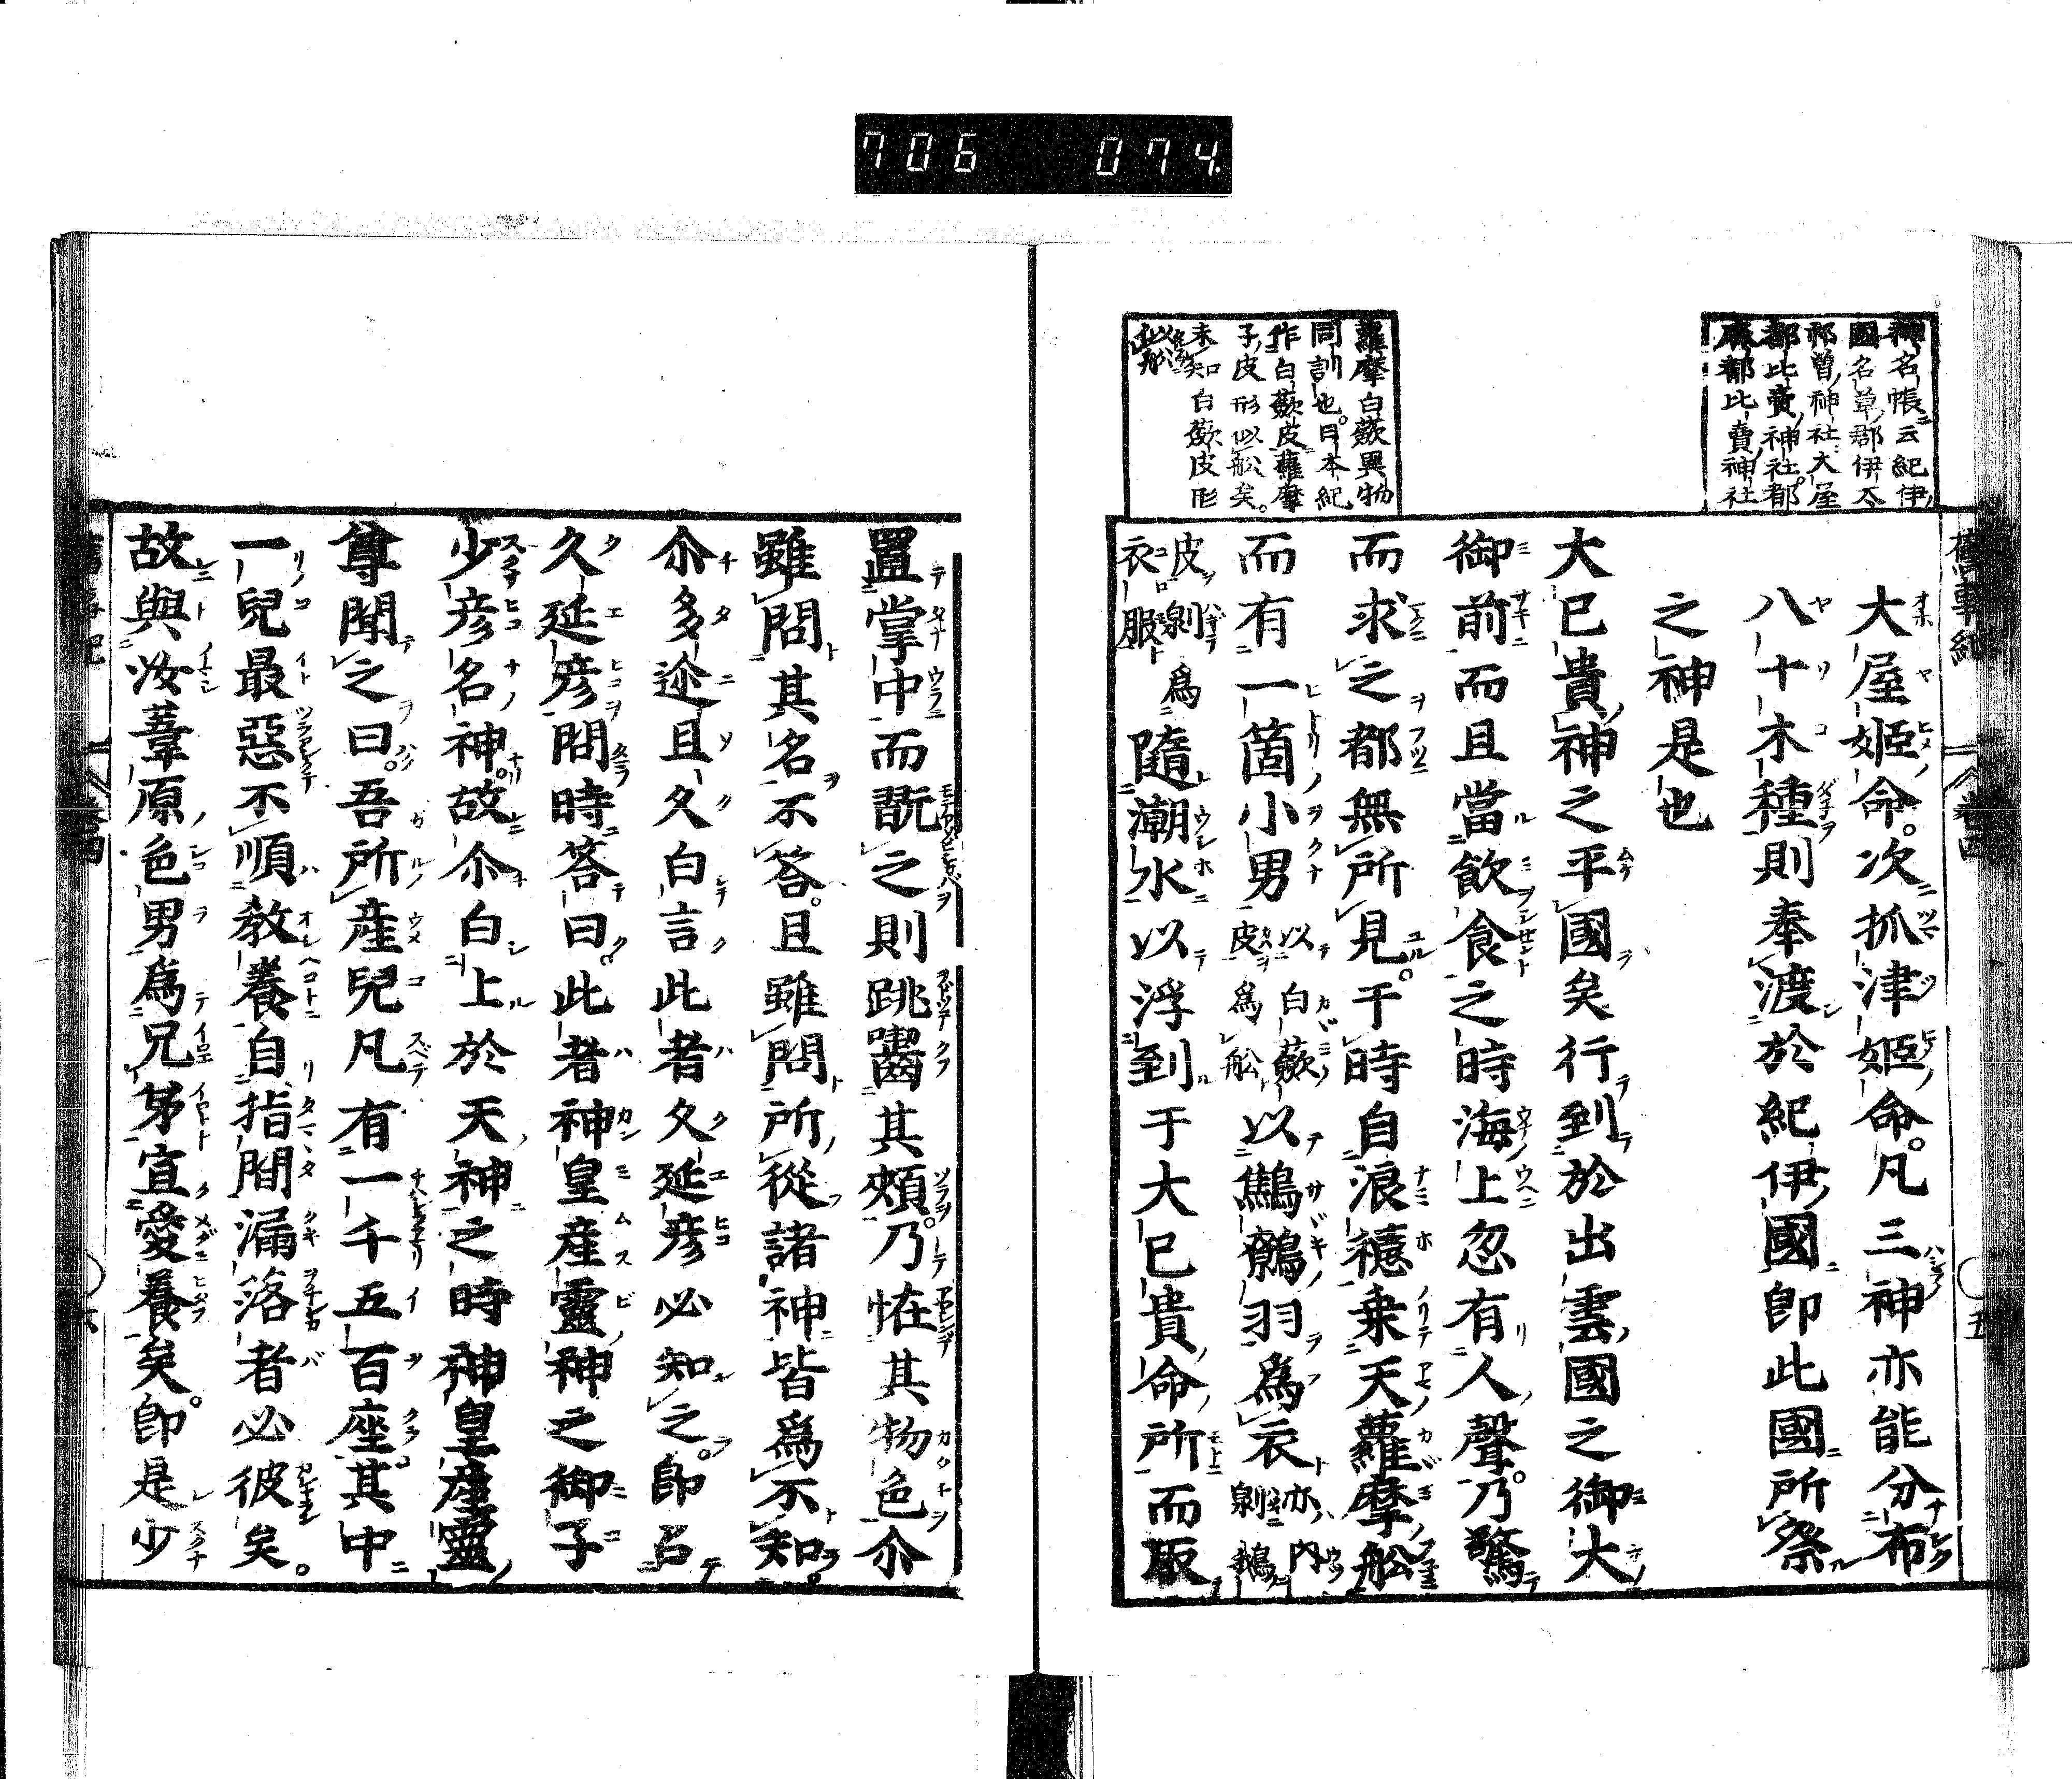 706 074
神名帳云紀伊
國名草郡伊太
祁曽神社大屋
都比賣神社都
麻都比賣神社
大屋姫命。次抓津姫命。凡三神亦能分布
八十木種則奉渡於紀伊國即此國所祭
之神是也
大已貴神之平國矣行到於出雲國之御大
御前而且當飲食之時海上忽有人聲。乃驚
而求之都無所見。于時自浪穗乗天蘿摩舩
而有一箇小男以白蘞皮爲舩以鷦鷯羽爲衣亦内剝鵝
皮剝爲衣服隨潮水以浮到于大已貴命所而取
蘿摩白蘞異物
同訓也。日本紀
作白蘞皮蘿摩
子皮形似舩矣。
未知白蘞皮形
似舩
置掌中而翫之則跳囓其頰。乃恠其物色尒
雖問其名不荅。且雖問所從諸神皆爲不知。
尒多迩且久白言此者久延彦必知之。即召
久延彦問時荅曰。此者神皇産靈神之御子
少彦名神。故尒白上於天神之時神皇産靈
尊聞之曰。吾所産兒凡有一千五百座。其中
一兒最惡不順教養自指間漏落者必彼矣。
故與汝葦原色男爲兄弟宜愛養矣。即是少
舊事紀 卷四 五